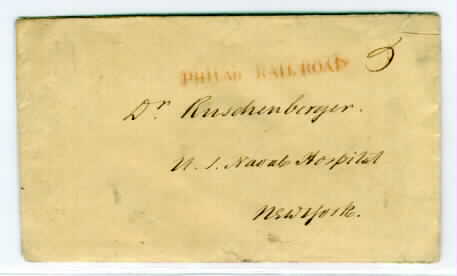 PHILAD RAILROAD 5
Dr Ruschenberger.
U. S. Naval Hospital
New York.